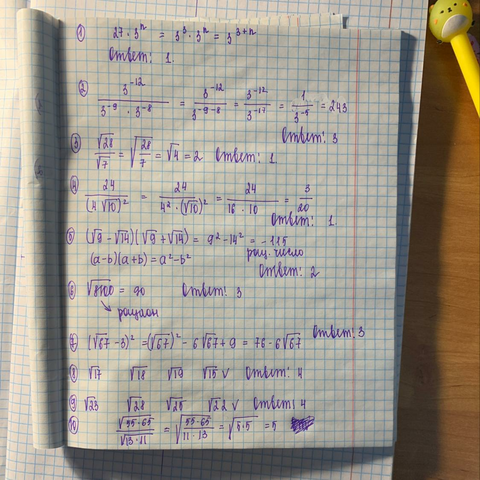 ① 27 · 3ⁿ = 3³ · 3ⁿ = 3³⁺ⁿ
Ответ: 1.
② 3⁻¹² / (3⁻⁹ · 3⁻⁸) = 3⁻¹² / 3⁻⁹⁻⁸ = 3⁻¹² / 3⁻¹⁷ = 1 / 3⁻⁵ = 243
Ответ: 3
③ √28 / √7 = √(28/7) = √4 = 2 Ответ: 1
④ 24 / (4√10)² = 24 / (4² · (√10)²) = 24 / (16 · 10) = 3/20
Ответ: 1.
⑤ (√9 - √14)(√9 + √14) = 9² - 14² = -115
(a-b)(a+b) = a² - b² рац. число
Ответ: 2
⑥ √8100 = 90 Ответ: 3
↘ рацион
⑦ (√67 - 3)² = (√67)² - 6√67 + 9 = 76 - 6√67 Ответ: 3
⑧ √17 √18 √19 √15 ∨ Ответ: 4
⑨ √23 √28 √25 √22 ∨ Ответ: 4
⑩ √(55·65) / √(13·11) = √(55·65 / 11·13) = √(5·5) = 5